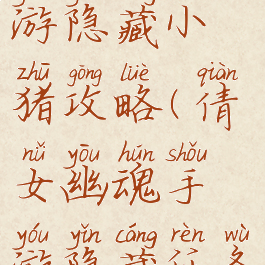 游隐藏小
zhū gōng lüè qiàn
猪攻略(倩
nǚ yōu hún shǒu
女幽魂手
yóu yǐn cáng rèn wù
游隐藏任务